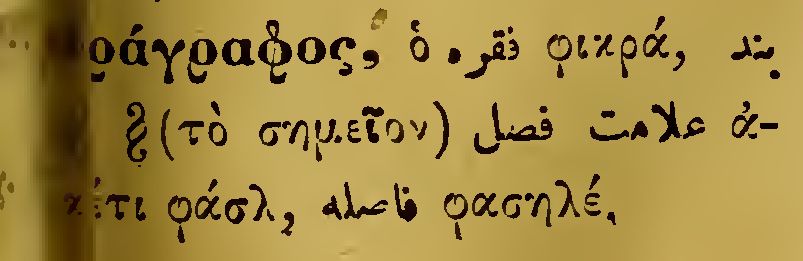 ράγραφος, ὁ فقره. φικρά, بند
§ (τὸ σημεῖον) علامت فصل ἀ-
έτι φάσλ, فاصله φασηλέ.